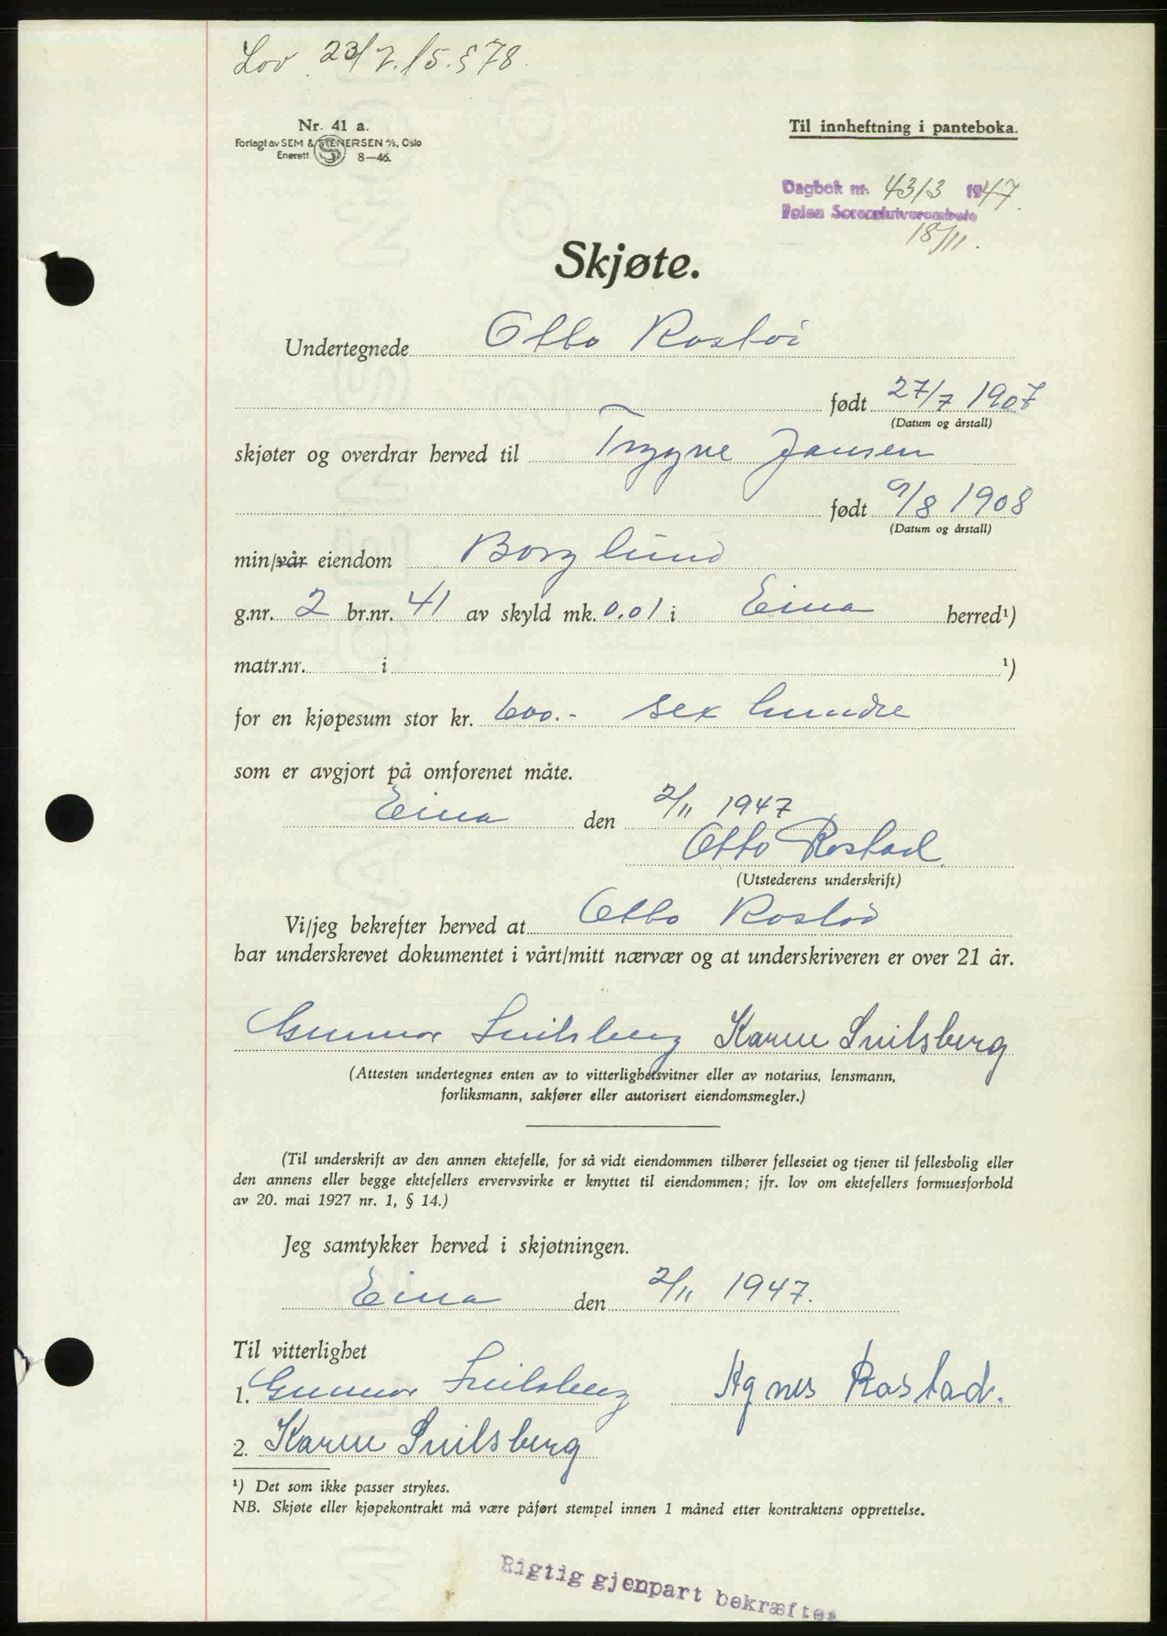 Lov 23/7.15.§78.
Nr. 41 a.
Forlagt av SEM & STENERSEN A/S, Oslo
Enerett 8—46.
Til innheftning i panteboka.
Dagbok nr. 4313 1947.
18/11.
Skjøte.
Undertegnede Otto
født 27/7 1907
(Datum og årstall)
skjøter og overdrar herved til Trygve Jansen
født 9/8 1908
(Datum og årstall)
min/vår eiendom Borglund
g.nr. 2 br.nr. 41 av skyld mk. 0.01 i Eina herred¹)
matr.nr. i ¹)
for en kjøpesum stor kr. 600.- sex hundre
som er avgjort på omforenet måte.
Eina den 2/11 1947
Otto Rostad.
(Utstederens underskrift)
Vi/jeg bekrefter herved at Otto
har underskrevet dokumentet i vårt/mitt nærvær og at underskriveren er over 21 år.
Gunnar Snilsberg Karen Snilsberg
(Attesten undertegnes enten av to vitterlighetsvitner eller av notarius, lensmann,
forliksmann, sakfører eller autorisert eiendomsmegler.)
(Til underskrift av den annen ektefelle, for så vidt eiendommen tilhører felleseiet og tjener til fellesbolig eller
den annens eller begge ektefellers ervervsvirke er knyttet til eiendommen; jfr. lov om ektefellers formuesforhold
av 20. mai 1927 nr. 1, § 14.)
Jeg samtykker herved i skjøtningen.
Eina den 2/11 1947.
Til vitterlighet
1. Gunnar Snilsberg Agnes Rostad.
2. Karen Snilsberg
¹) Det som ikke passer strykes.
NB. Skjøte eller kjøpekontrakt må være påført stempel innen 1 måned etter kontraktens opprettelse.
Rigtig gjenpart bekræftes